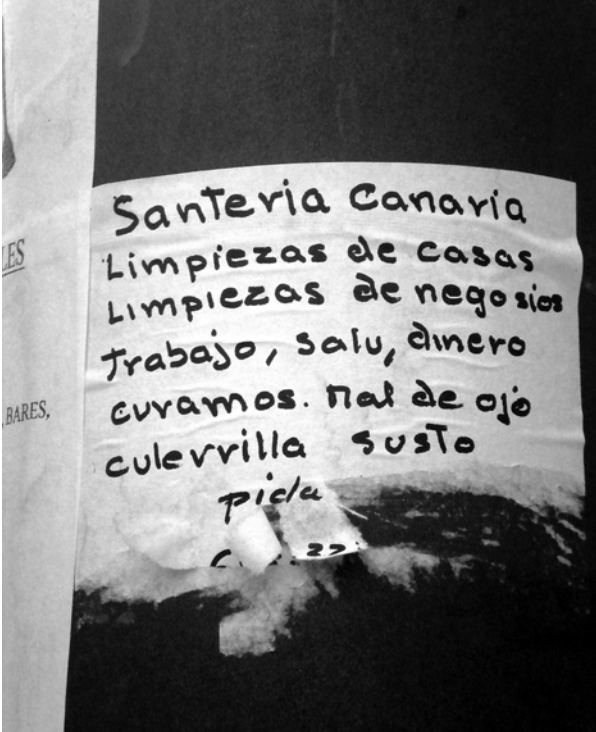 LES
, BARES,
Santeria Canaria
Limpiezas de casas
Limpiezas de negosios
Trabajo, salu, dinero
curamos. mal de ojo
culevrilla susto
pida
22